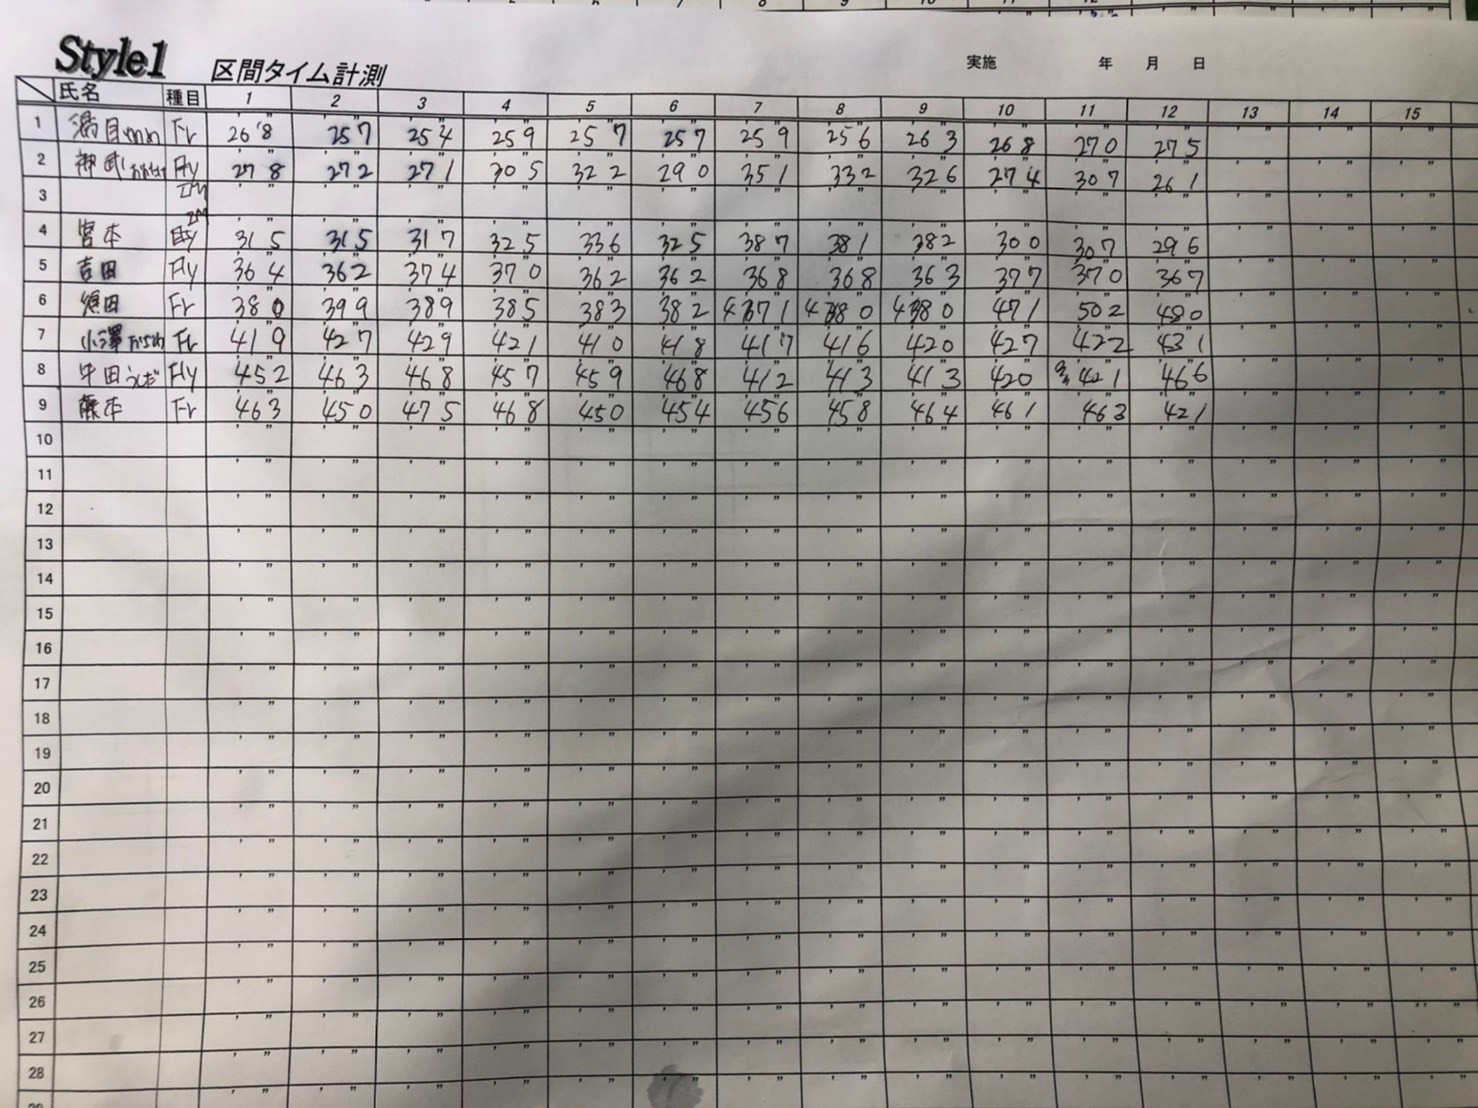 Style1 区間タイム計測 実施 年 月 日
氏名 種目 1 2 3 4 5 6 7 8 9 10 11 12 13 14 15
1 Fr 26'8 257 254 259 257 257 259 256 263 268 270 275
2 神武 Fly 278 272 271 305 322 290 351 332 326 274 307 261
3 IM
4 宮本 IM 315 315 317 325 336 325 387 381 382 300 307 296
5 吉田 Fly 364 362 374 370 362 362 368 368 363 377 370 367
6 須田 Fr 380 399 389 385 383 382 471 502 480
7 小澤 Fr 419 427 429 421 410 418 417 416 420 427 422 431
8 牛田 うしだ Fly 452 463 468 457 459 468 412 413 413 420 421 466
9 藤本 Fr 463 450 475 468 450 454 456 458 464 461 463 421
10
11
12
13
14
15
16
17
18
19
20
21
22
23
24
25
26
27
28